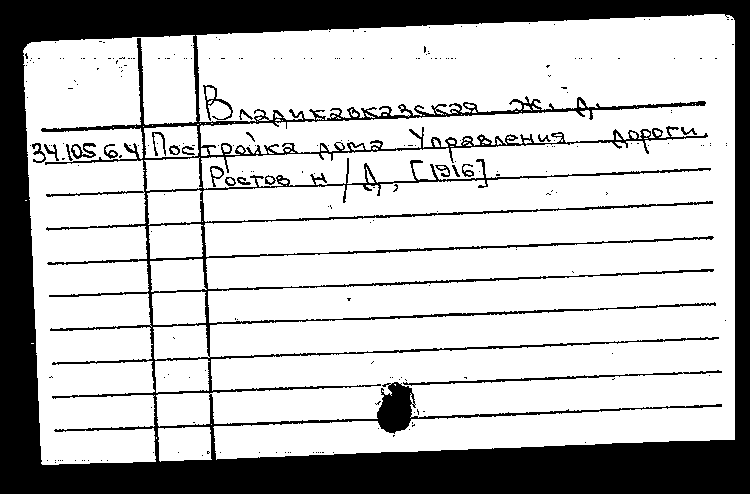 Владикавказская ж. д.
34.105.6.4 Постройка дома Управления дороги.
Ростов н/Д, [1916].